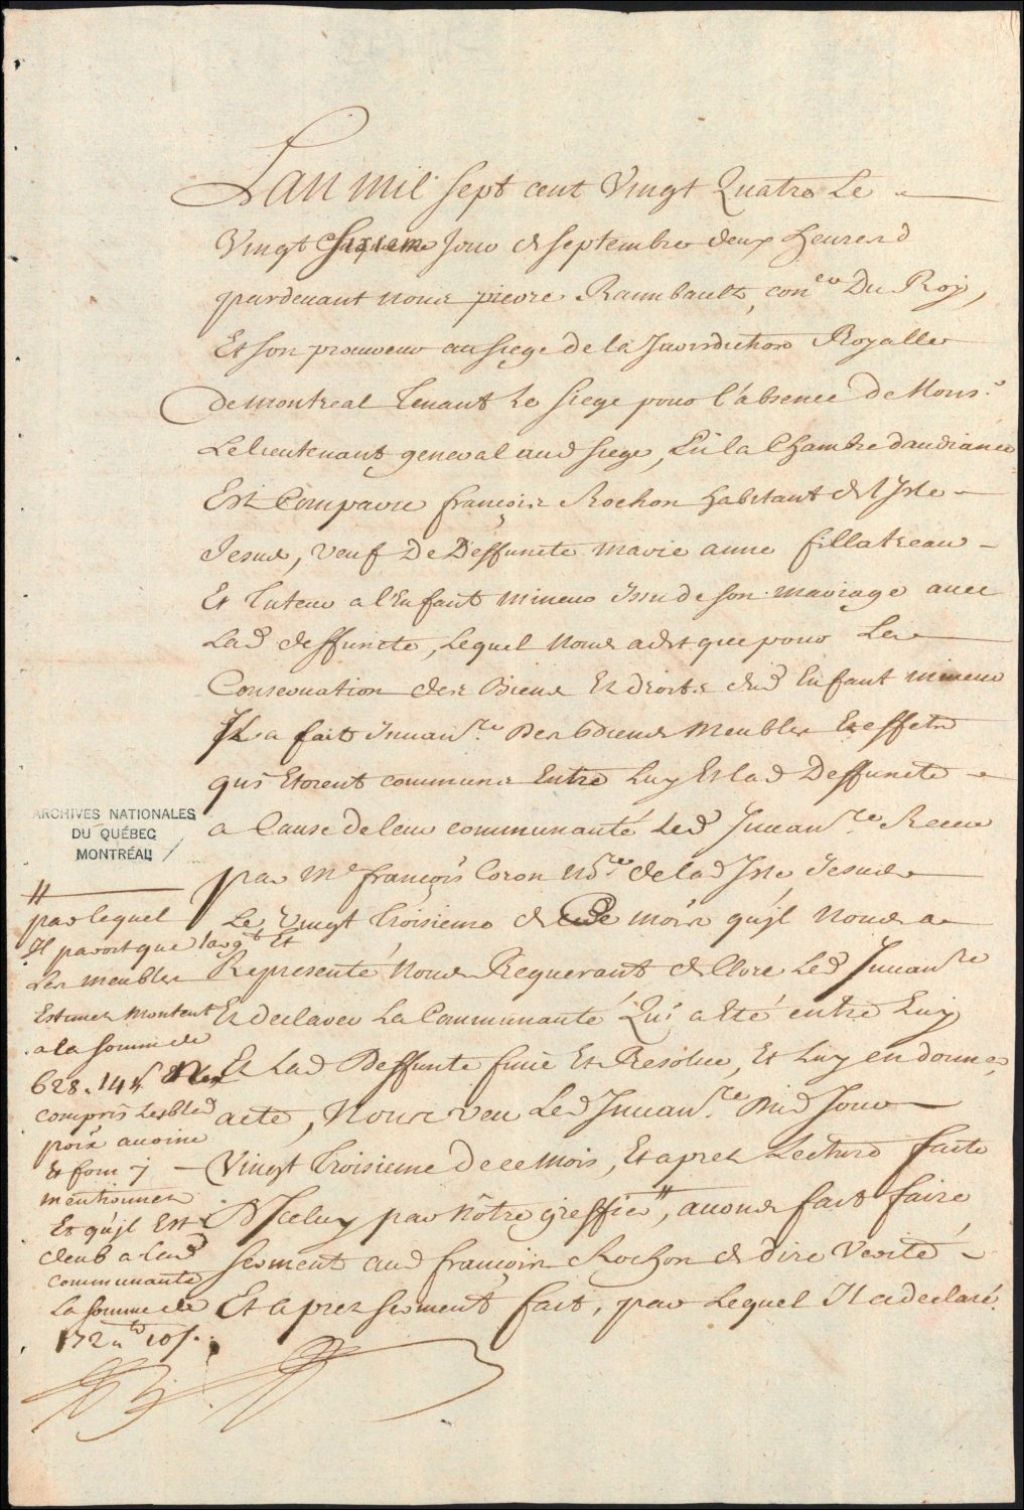 Lan mil sept cent Vingt Quatre Le
Vingt Sixieme Jour de septembre deux heures d
pardevant nous pierre Raimbault, con.er Du Roy,
Et son procureur au siege de la Jurisdiction Royalle
de montreal tenant le siege pour l'absence de Mons.r
Le lieutenant general aud siege, En la Chambre daudiance
Est Comparu françois Rochon habitant de l'Isle
Jesus, veuf De Deffuncte marie anne fillatreau
Et Tuteur a l'Enfant mineur Issu de son mariage avec
Lad deffuncte, Lequel Nous a dit que pour La
Conservation des Biens Et droits dud Enfant mineur
Il a fait Inuan.re Des biens Meubles Et effets
qui Etoient communs Entre Luy Et lad Deffuncte
a Cause de leur communauté Led Inuan.re Receu
par Me françois Coron No.re de lad Isle Jesus
Le Vingt troisieme de ce mois qu'jl Nous a
Representé Nous Requerant de Clore Led Inuan.re
Et declarer La Communauté Qui a Eté entre Luy
Et Lad Deffunte finie Et Resolue, Et Luy en donner
acte, Nous veu Led Inuan.re Dud Jour
Vingt troisieme De ce Mois, Et apres Lecture faite
D'Iceluy par Nôtre greffier #, auons fait faire
serment aud françois Rochon de dire Verité
Et apres serment fait, par Lequel Il a declaré
ARCHIVES NATIONALES
DU QUÉBEC
MONTRÉAL
#
par lequel
Il paroit que l'arg.t Et
Les meubles
Estimés Montent
a la somme de
628.14s
compris Les bled
pois auoine
Et foin j
mentionnés
Et qu'jl Est
deub a lad
communauté
La somme de
172 10s.